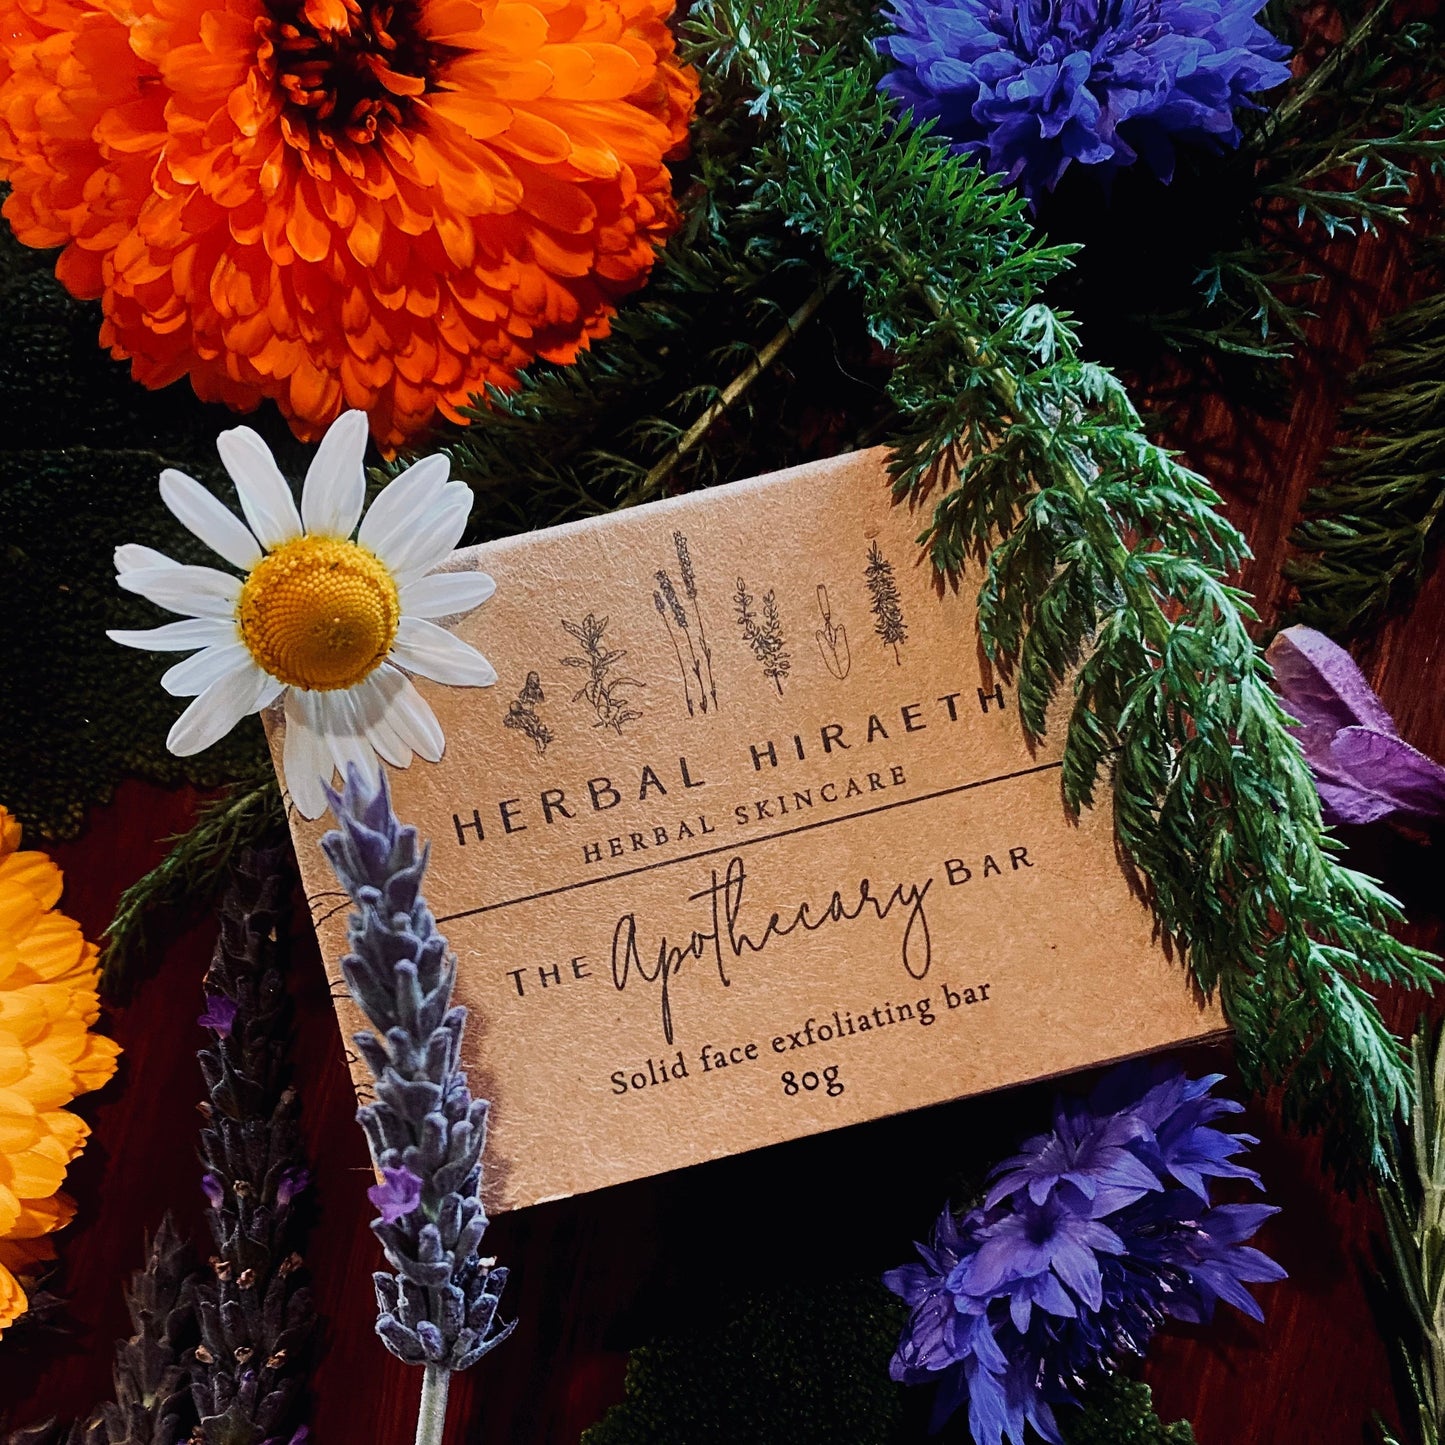 HERBAL HIRAETH
HERBAL SKINCARE
THE Apothecary BAR
Solid face exfoliating bar
80g